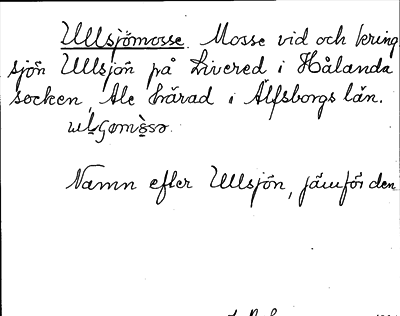 Ullsjömosse. Mosse vid och kring
sjön Ullsjön på Livered i Hålanda
socken, Ale härad i Älfsborgs län.
Namn efter Ullsjön, jämför den